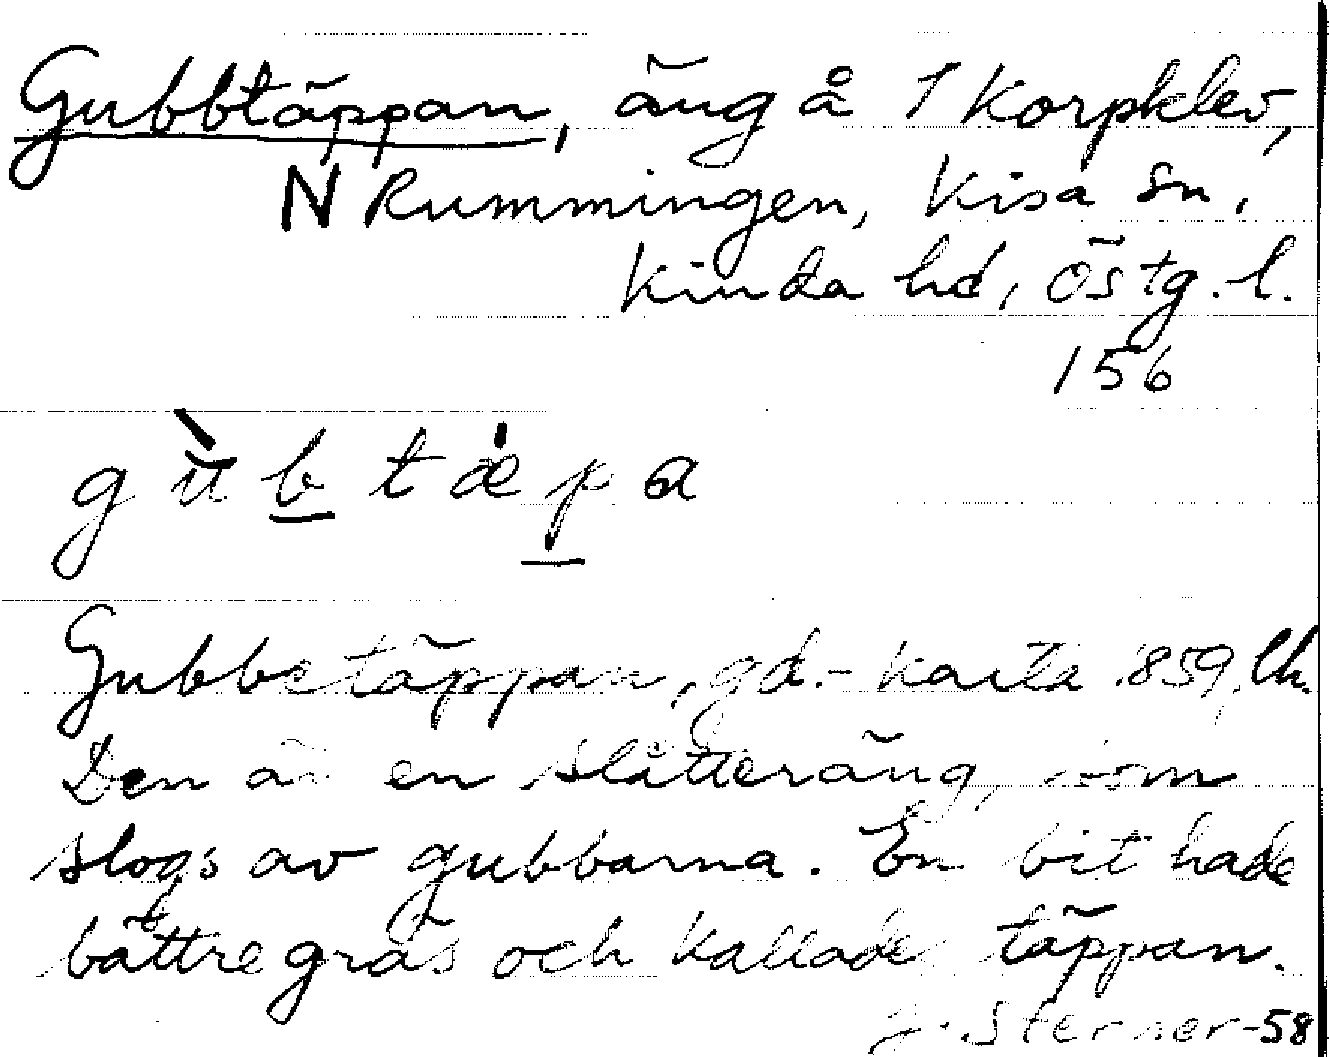 Gubbtäppan, äng å 1 Korpklev,
N Rummingen, Kisa sn,
Kinda hd, Östg. l.
156
gùbtæpa
Gubbetäppan, gd.-karta 1859, lh.
Den är en slåtteräng, som
slogs av gubbarna. En bit hade
bättre gräs och kallade täppan.
J. Sterner-58